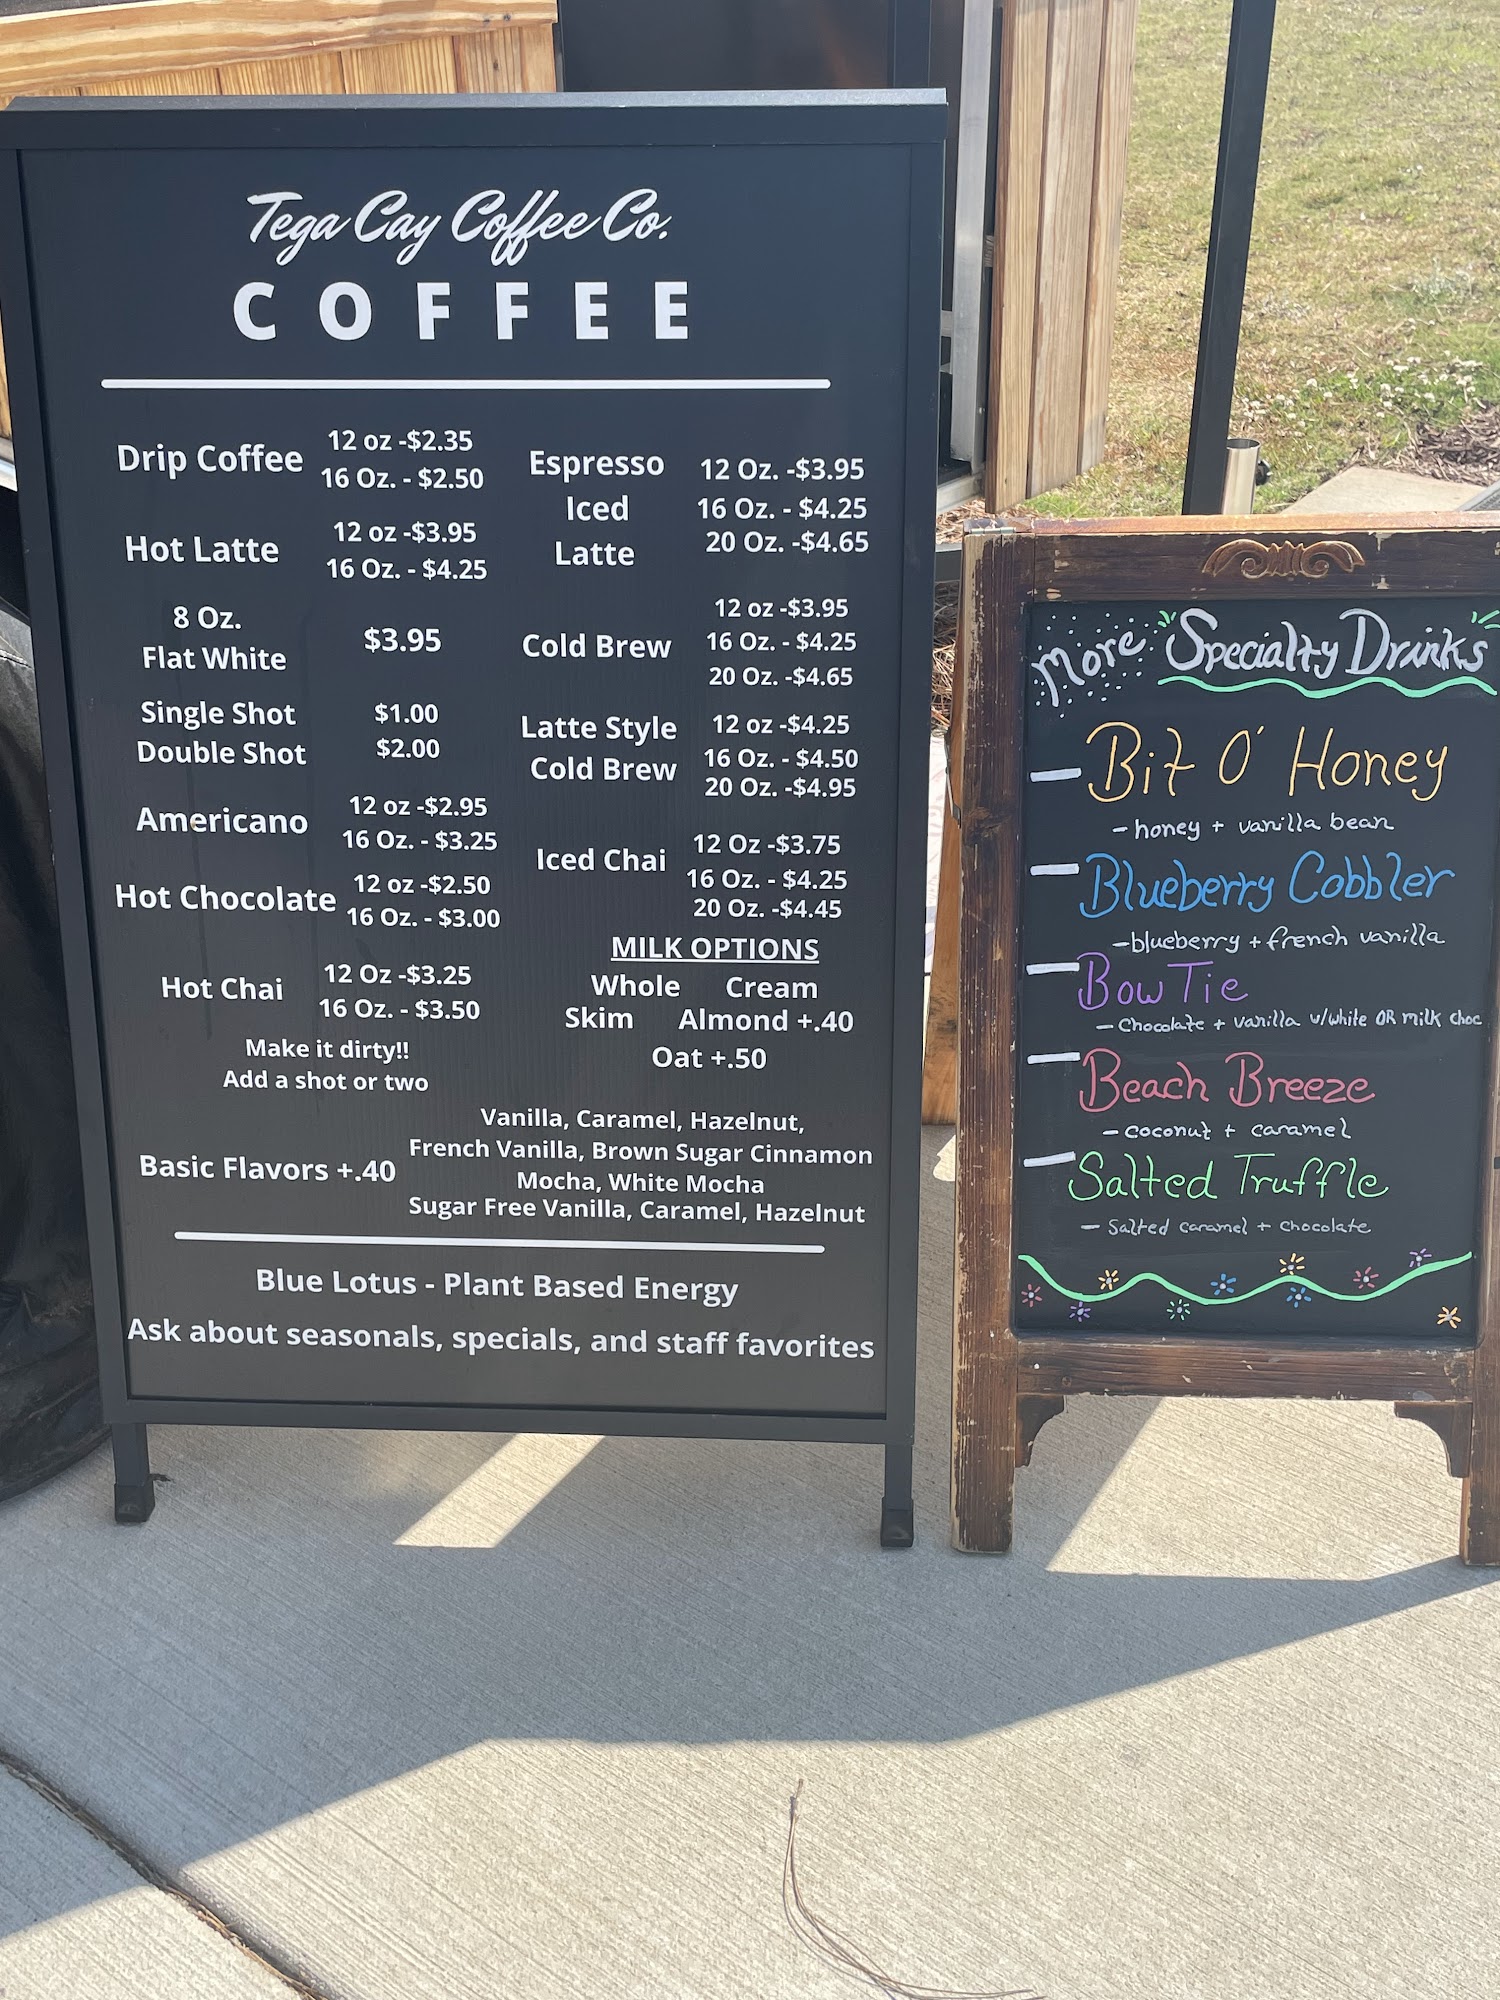 Tega Cay Coffee Co.
COFFEE
Drip Coffee
12 oz -$2.35
16 Oz. - $2.50
Hot Latte
12 oz -$3.95
16 Oz. - $4.25
8 Oz.
Flat White
$3.95
Single Shot $1.00
Double Shot $2.00
Americano
12 oz -$2.95
16 Oz. - $3.25
Hot Chocolate
12 oz -$2.50
16 Oz. - $3.00
Hot Chai
12 Oz -$3.25
16 Oz. - $3.50
Make it dirty!!
Add a shot or two
Espresso
Iced
Latte
12 Oz. -$3.95
16 Oz. - $4.25
20 Oz. -$4.65
Cold Brew
12 oz -$3.95
16 Oz. - $4.25
20 Oz. -$4.65
Latte Style
Cold Brew
12 oz -$4.25
16 Oz. - $4.50
20 Oz. -$4.95
Iced Chai
12 Oz -$3.75
16 Oz. - $4.25
20 Oz. -$4.45
MILK OPTIONS
Whole Cream
Skim Almond +.40
Oat +.50
Basic Flavors +.40
Vanilla, Caramel, Hazelnut,
French Vanilla, Brown Sugar Cinnamon
Mocha, White Mocha
Sugar Free Vanilla, Caramel, Hazelnut
Blue Lotus - Plant Based Energy
Ask about seasonals, specials, and staff favorites
More Specialty Drinks
Bit O' Honey
- honey + vanilla bean
Blueberry Cobbler
- blueberry + french vanilla
Bow Tie
- Chocolate + vanilla w/white OR milk choc
Beach Breeze
- coconut + caramel
Salted Truffle
- Salted caramel + chocolate